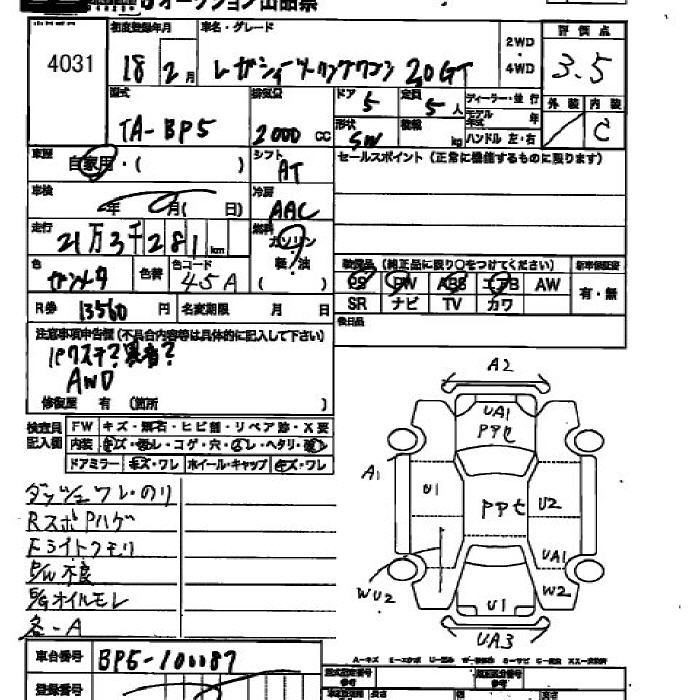 オークション出品票
4031
初度登録年月
18 2月
車名・グレード
レガシィツーリングワゴン 20GT
2WD
4WD
評価点
3.5
型式
TA-BP5
排気量
2000 CC
ドア 5
定員 5人
形状 SW
積載 kg
ディーラー・並行
モデル年式 年
ハンドル 左・右
外装 内装
C
車歴
自家用・( )
シフト
AT
セールスポイント (正常に機能するものに限ります)
車検
年 月( 日)
冷房
AAC
走行
21万3千281km
燃料
ガソリン
軽油
色
ガンメタ
色替
色コード
45A
装備品 (純正品に限り○をつけてください)
新車保証書
PS PW ABS エアB AW
有・無
SR ナビ TV カワ
R券 13560円
名変期限 月 日
後日品
注意事項申告欄 (不具合内容等は具体的に記入して下さい)
AWD
修復歴 有 (箇所 )
検査員記入欄
FW キズ・飛石・ヒビ割・リペア跡・X要
内装 キズ・汚レ・コゲ・穴・ ・ヘタリ・
ドアミラー キズ・ワレ ホイール・キャップ キズ・ワレ
ダッシュワレ・のり
RスポPハゲ
Fライトクモリ
P/W不良
E/Gオイルモレ
各-A
A2
UA1
PPセ
A1
U1
PPセ
U2
UA1
WU2
W2
U1
UA3
車台番号
BP5-100187
登録番号